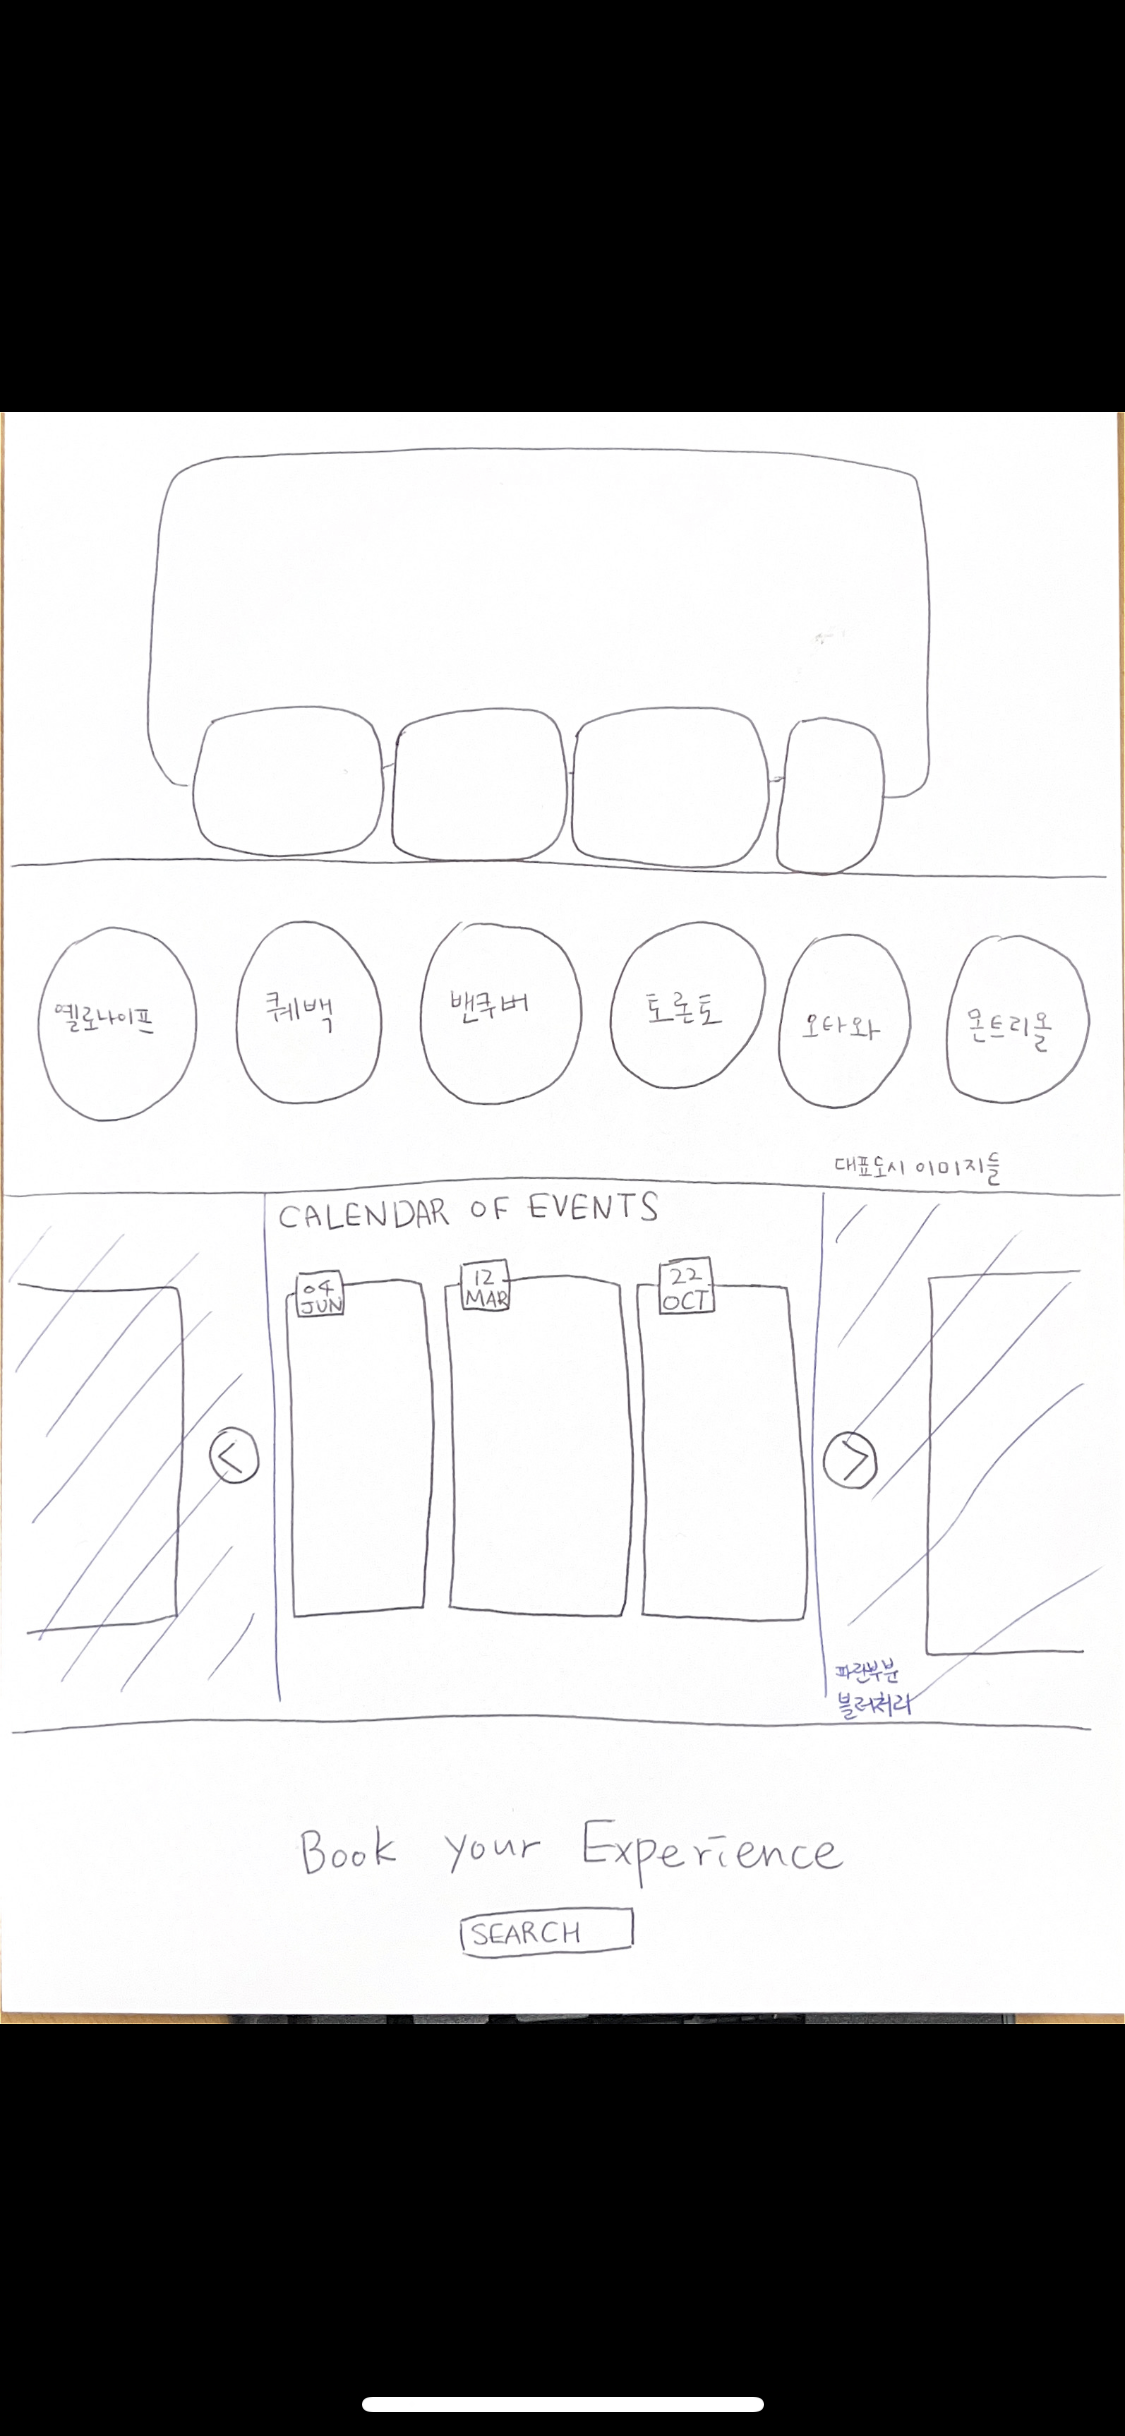 옐로나이프
퀘백
밴쿠버
토론토
오타와
몬트리올
대표도시 이미지들
CALENDAR OF EVENTS
04
JUN
12
MAR
22
OCT
<
>
파란부분
블러처리
Book your Experience
SEARCH